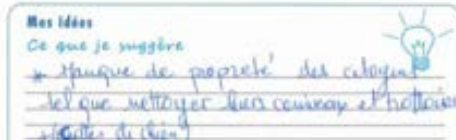 Mes Idées
Ce que je suggère
* Manque de propreté des citoyens
tel que nettoyer leurs et trottoirs
de chien)